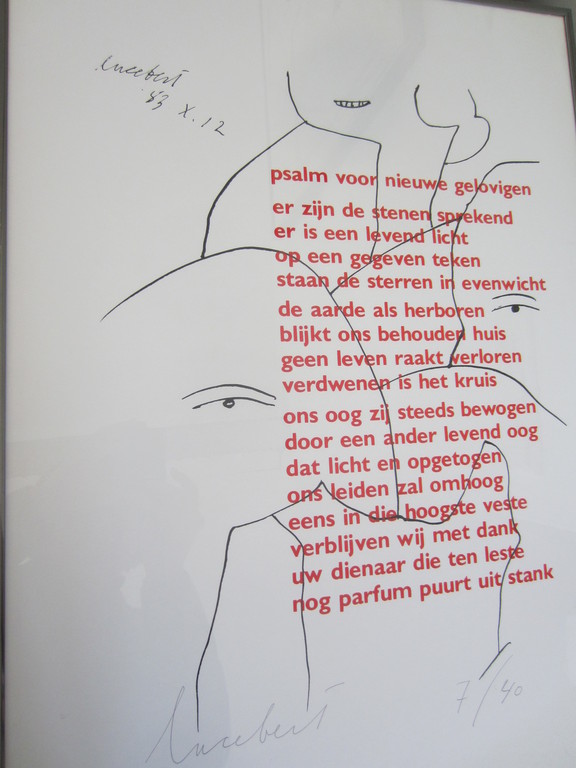 lucebert
'83 X. 12
psalm voor nieuwe gelovigen
er zijn de stenen sprekend
er is een levend licht
op een gegeven teken
staan de sterren in evenwicht
de aarde als herboren
blijkt ons behouden huis
geen leven raakt verloren
verdwenen is het kruis
ons oog zij steeds bewogen
door een ander levend oog
dat licht en opgetogen
ons leiden zal omhoog
eens in die hoogste veste
verblijven wij met dank
uw dienaar die ten leste
nog parfum puurt uit stank
lucebert
7/40